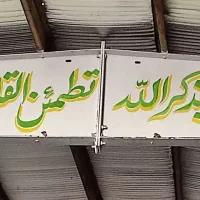 بذكر الله تطمئن القلو